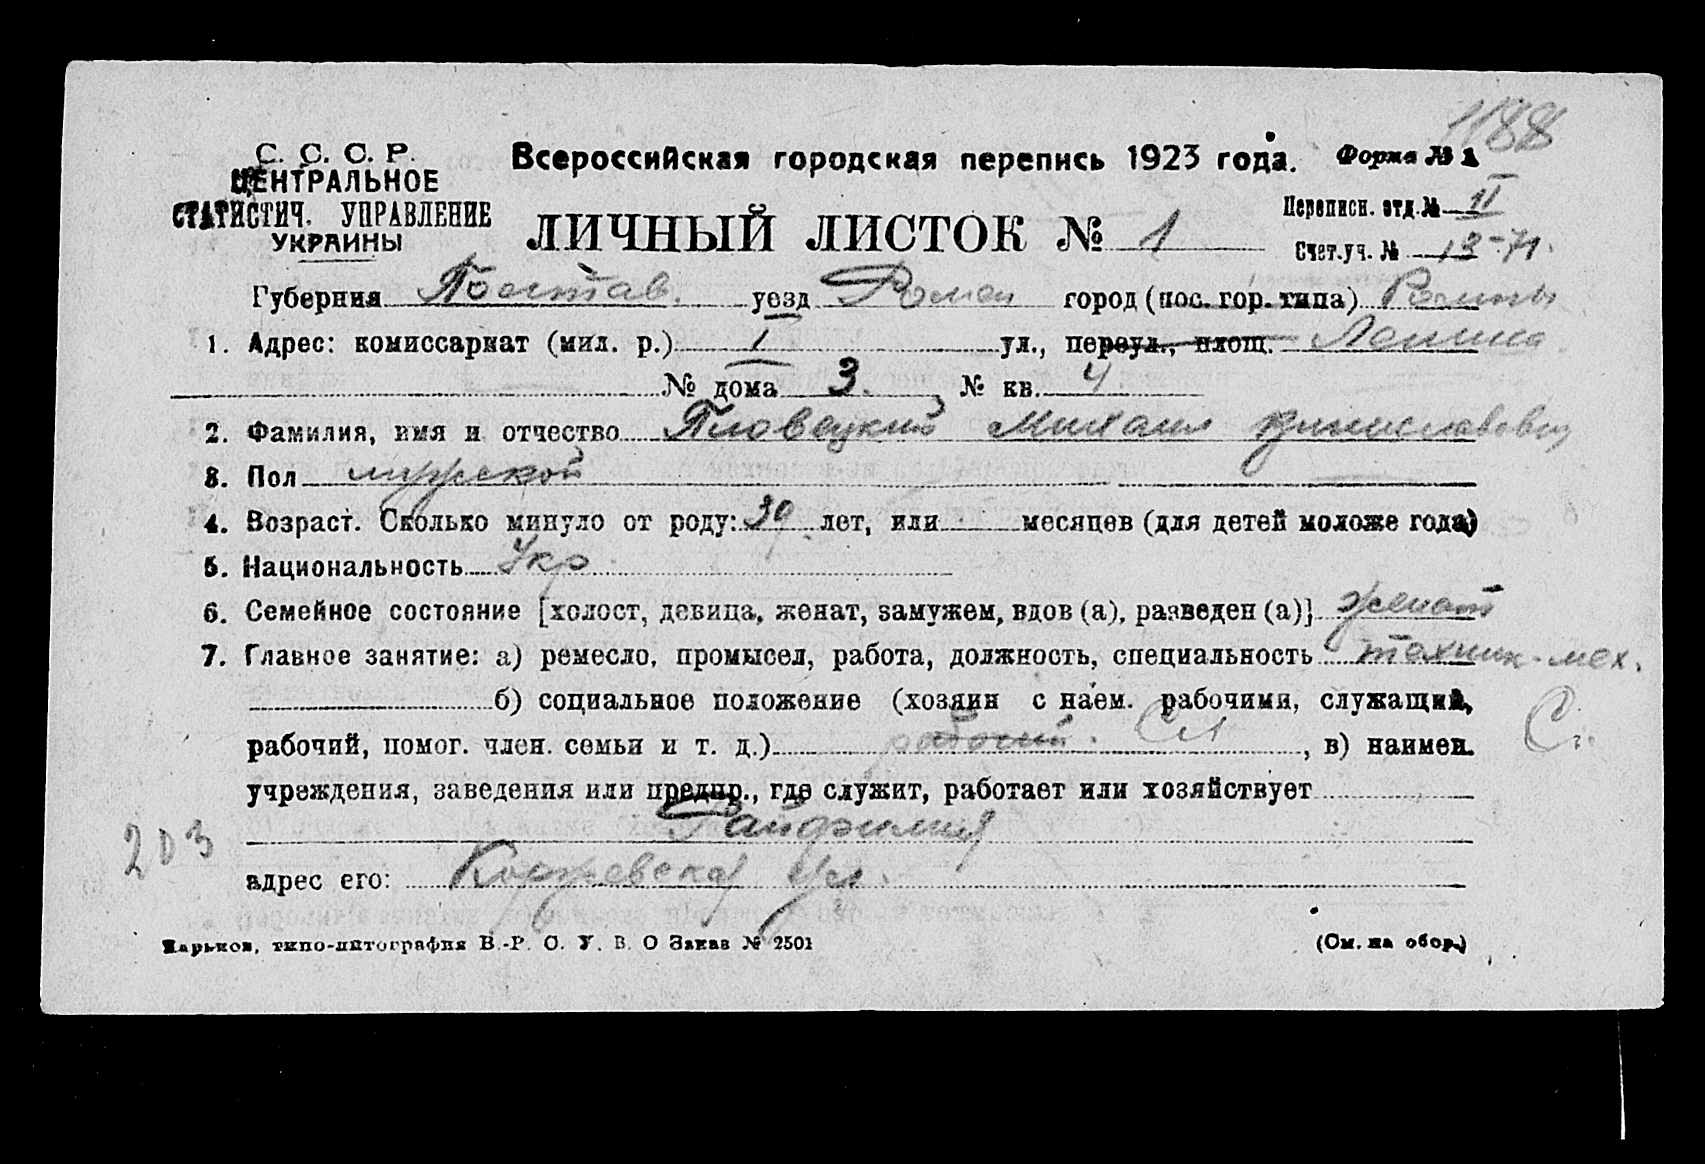 1188
С. С. С. Р.
ЦЕНТРАЛЬНОЕ
СТАТИСТИЧ. УПРАВЛЕНИЕ
УКРАИНЫ
Всероссийская городская перепись 1923 года. Форма № 1
ЛИЧНЫЙ ЛИСТОК № 1
Переписн. отд. № II
Счет.уч. № 13-71.
Губерния Полтав. уезд Ромен город (пос. гор. типа) Ромны
1. Адрес: комиссариат (мил. р.) I ул., переул., площ. Ленина
№ дома 3. № кв. 4
2. Фамилия, имя и отчество Пловецкий Михаил
3. Пол мужской
4. Возраст. Сколько минуло от роду: 39 лет, или месяцев (для детей моложе года)
5. Национальность Укр
6. Семейное состояние [холост, девица, женат, замужем, вдов (а), разведен (а)] женат
7. Главное занятие: а) ремесло, промысел, работа, должность, специальность техник-мех.
б) социальное положение (хозяин с наем. рабочими, служащий,
рабочий, помог. член. семьи и т. д.) рабочий. Сл , в) наимен.
С.
учреждения, заведения или предпр., где служит, работает или хозяйствует
203
адрес его: Коржевская ул.
Харьков, типо-литография В.-Р. О. У. В. О Заказ № 2501
(См. на обор.)